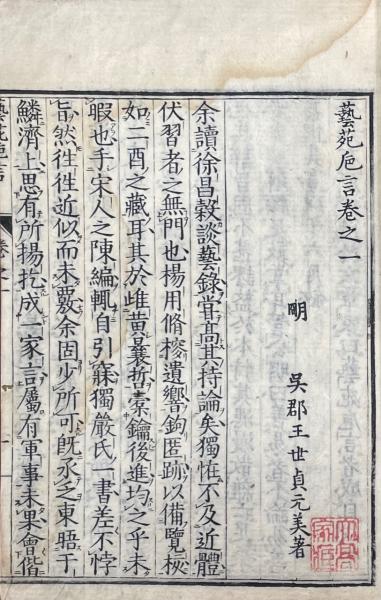 藝苑巵言卷之一
明 吳郡王世貞元美著
余讀徐昌穀談藝錄甞高其持論矣獨恠不及近體
伏習者之無門也揚用脩搜遺響鉤匿跡以備覽核
如二酉之藏耳其於雌黃曩哲橐鑰後進均之乎未
暇也手宋人之陳編輒自引寐獨嚴氏一書差不悖
旨然徃徃近似而未覈余固少所可旣承乏東晤于
鱗濟上思有所揚扢成一家言屬有軍事未果會偕
藝苑巵言 卷之一